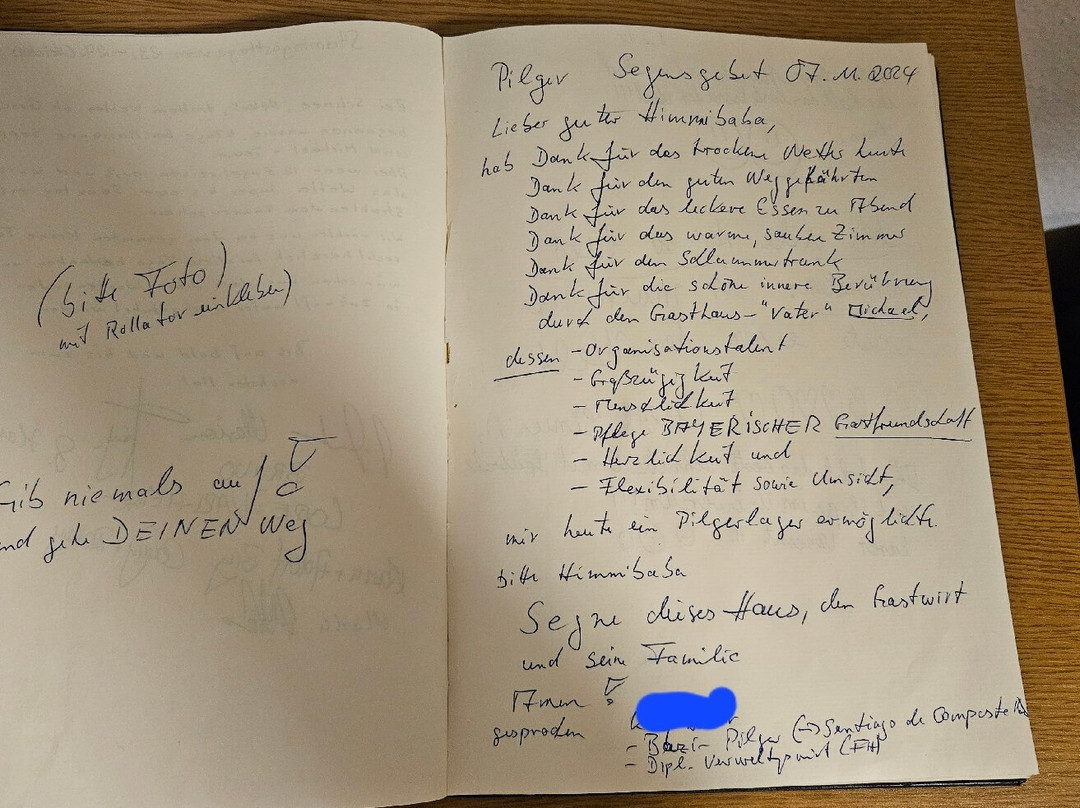 (bitte Foto)
mit Rollator einkleben)
Gib niemals auf!
und gehe DEINEN Weg
Pilger Segensgebet 07.11.2024
Lieber guter Himmibaba,
hab Dank für das trockene Wetter heute
Dank für den guten Weggefährten
Dank für das leckere Essen zu Abend
Dank für das warme, saubere Zimmer
Dank für den Schlummertrunk
Dank für die schöne innere Berührung
durch den Gasthaus-"Vater" Michael,
dessen - Organisationstalent
- Großzügigkeit
- Menschlichkeit
- Pflege BAYERISCHER Gastfreundschaft
- Herzlichkeit und
- Flexibilität sowie Umsicht,
mir heute ein Pilgerlager ermöglichte.
bitte Himmibaba
Segne dieses Haus, den Gastwirt
und seine Familie
Amen!
gesprochen
- Bazi- Pilger (→ Santiago de Compostela
- Dipl. Verwaltgswirt (FH)